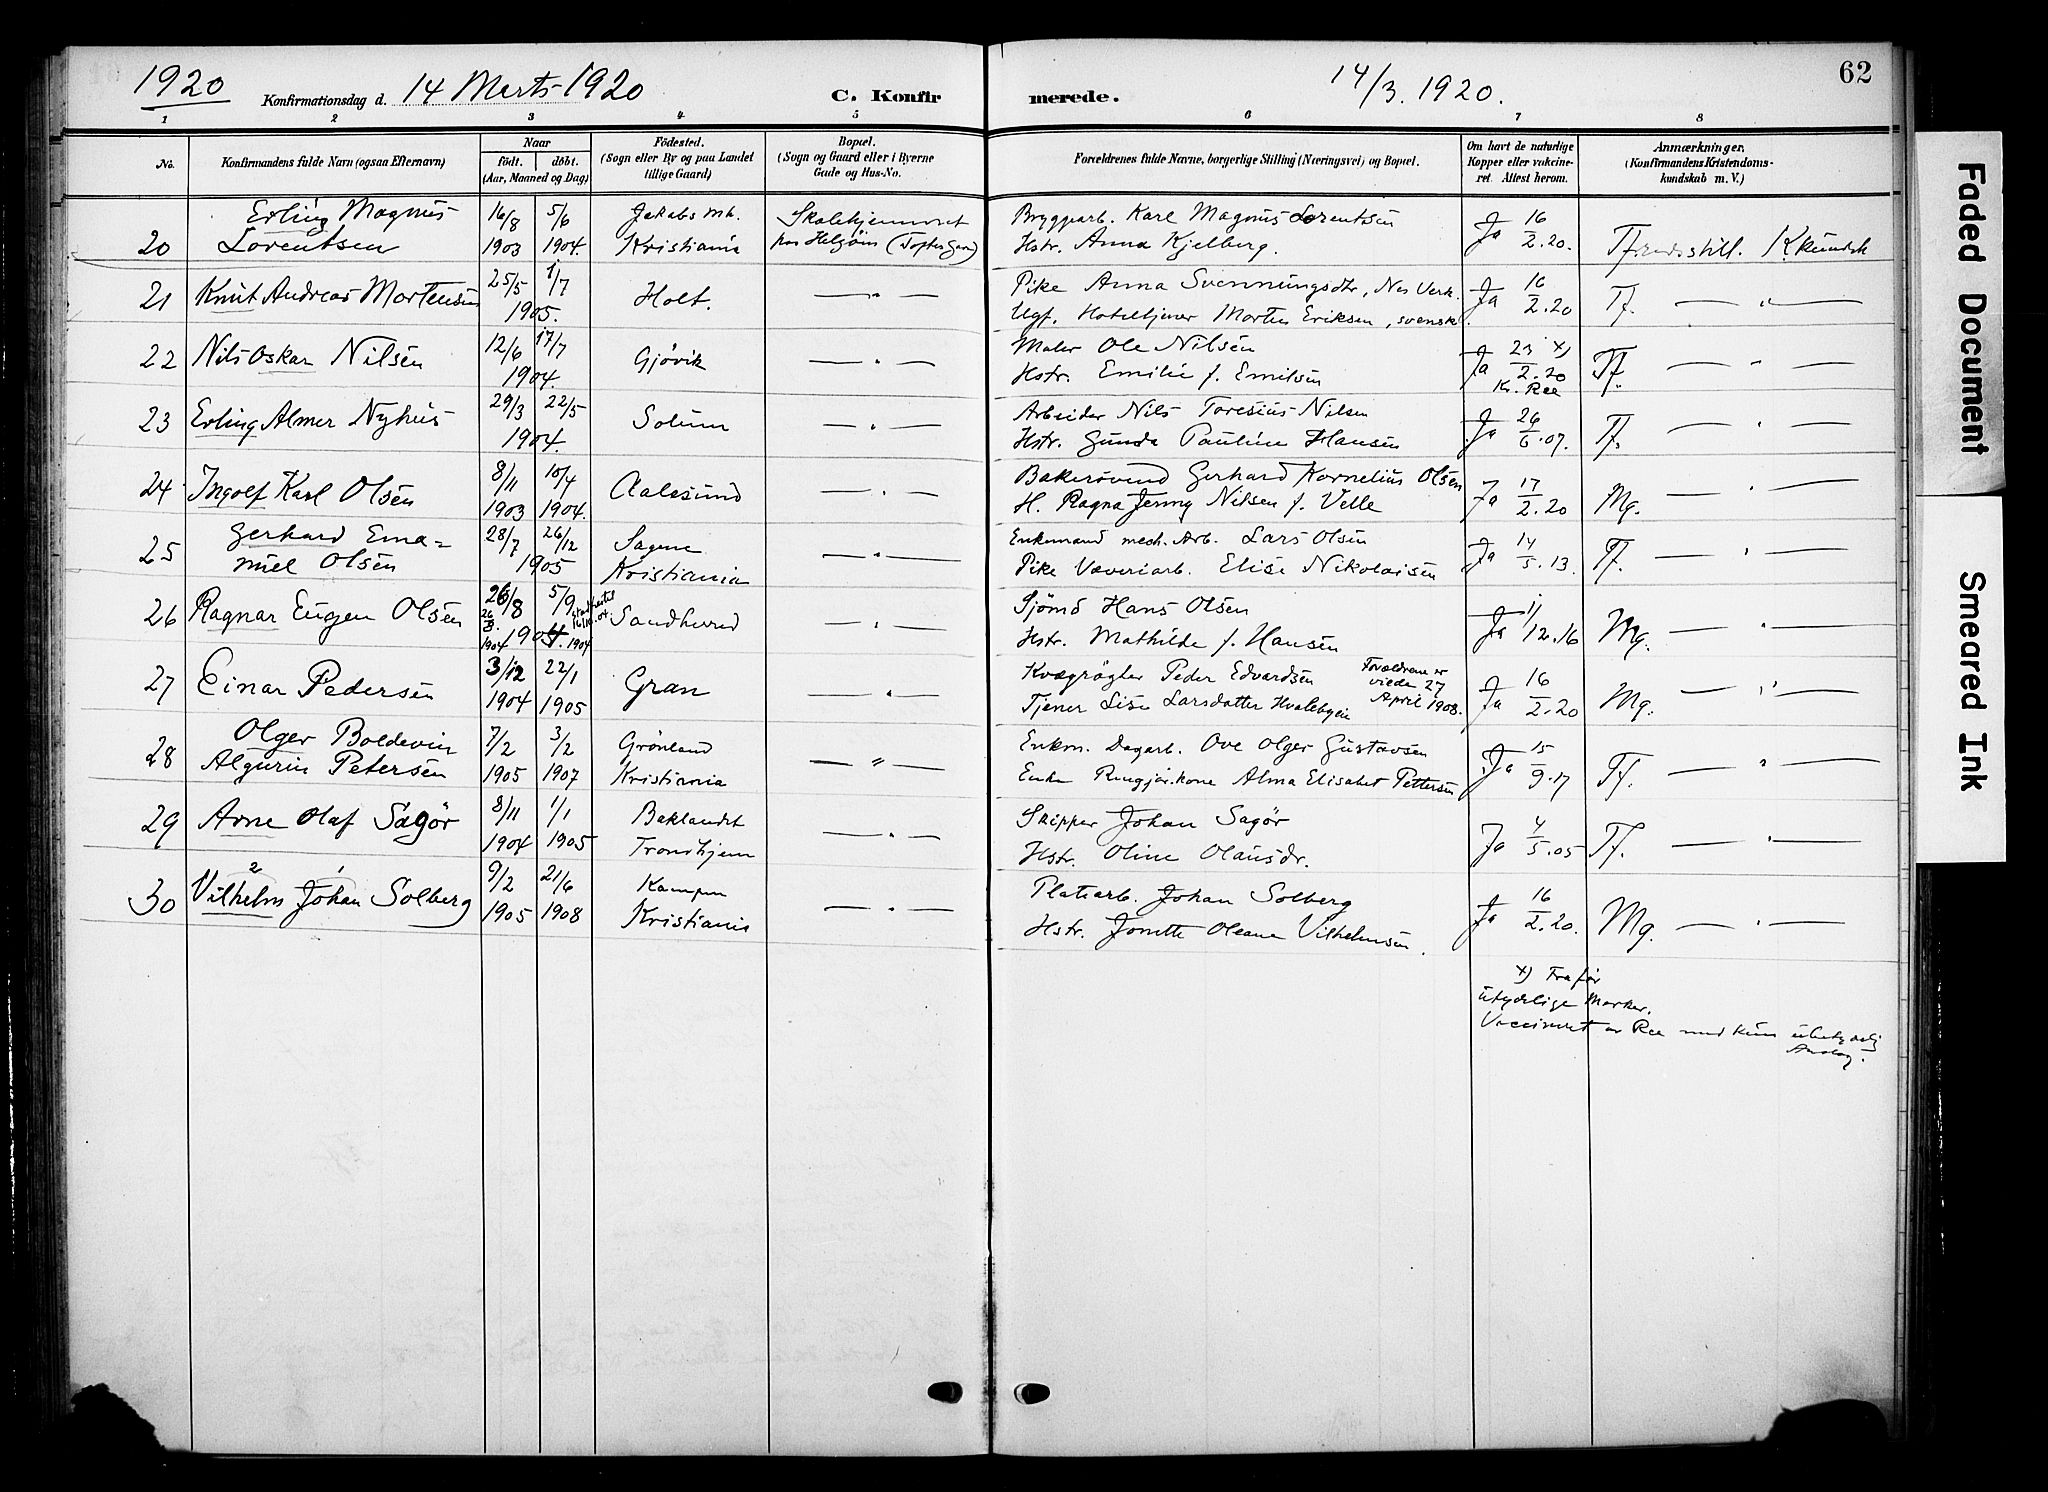 1920 Konfirmationsdag d. 14 Marts 1920 C. Konfir merede. 14/3. 1920. 62
1 2 3 4 5 6 7 8
No. Konfirmandens fulde Navn (ogsaa Efternavn) Naar født. døbt. (Aar, Maaned og Dag) Fødested. (Sogn eller By og paa Landet tillige Gaard) Bopæl. (Sogn og Gaard eller i Byerne Gade og Hus-No. Forældrenes fulde Navne, borgerlige Stilling (Næringsvei) og Bopæl. Om havt de naturlige Kopper eller vakcineret. Attest herom. Anmærkninger. (Konfirmandens Kristendomskundskab m. V.)
Erling Magnus 16/8 5/6 Jakobs mh. Skolehjemmet Bryggarb. Karl Magnus Lorentsen Ja 16
20 Lorentsen 1903 1904. Kristiania paa Helgøen (Toftes Gave) Hstr. Anna Kjelberg. Ja 2.20. Tfredsstill. Kkundsk
21 Knut Andreas Mortensen 25/5 1/7 1905. Holt. — " — Pike Anna Svenningsdtr, Nes Verk. Ja 16
Ugf. Hoteltjener Morten Eriksen, svensk. Ja 2.20 Tf. — " —
22 Nils Oskar Nilsen 12/6 17/7 1904. Gjøvik — " — Maler Ole Nilsen Ja 23 x)
Hstr. Emilie f. Emilsen 2.20 Kr. Ree Tf. — " —
23 Erling Almer Nyhus 29/3 22/5 1904. Solum — " — Arbeider Nils Toresius Nilsen Ja 26
Hstr. Gunda Pauline Hansen 6.07. Tf. — " —
24 Ingolf Karl Olsen 8/11 10/4 1903 1904. Aalesund — " — Bakersvend Gerhard Kornelius Olsen Ja 17
H. Ragna Jenny Nilsen f. Velle 2.20 Mg. — " —
25 Gerhard Ema= 28/7 26/12 Sagene — " — Enkemand mech. Arb. Lars Olsen Ja 14
nuel Olsen 1905 Kristiania Pike Væveriarb. Elise Nikolaisen 5.13. Tf. — " —
26 Ragnar Eugen Olsen 26/8 5/9 1904. Sandherred — " — Sjømd Hans Olsen Ja 1/12.16
Hstr. Mathilde f. Hansen Mg. — " —
27 Einar Pedersen 3/12 22/1 Gran — " — Kvægrøgter Peder Edvardsen Forældrene er viede 27 April 1908. Ja 16
1904 1905 Tjener Lise Larsdatter Hvalebyeie 2.20 Mg. — " —
Olger Boldevin 7/2 3/2 Grønland Enkm. Dagarb. Ove Olger Gustavsen Ja 15
28 Algurin Petersen 1905 1907 Kristiania — " — Enke Rengjør.kone Alma Elisabet Pettersen 9.17 Tf. — " —
29 Arne Olaf Sagør 8/11 1/1 Baklandet — " — Skipper Johan Sagør Ja 4
1904 1905 Trondhjem Hstr. Oline Olausdr. 5.05 Tf. — " —
30 Vilhelm Johan Solberg 9/2 21/6 Kampen — " — Platearb. Johan Solberg Ja 16
2 1 1905 1908 Kristiania Hstr. Jonette Oleane Vilhelmsen. 2.20. Mg. — " —
x) Fra før
utydelige Merker.
Vaccineret av Ree med kun ubetydelig
Anslag.
Faded Document
Smeared Ink